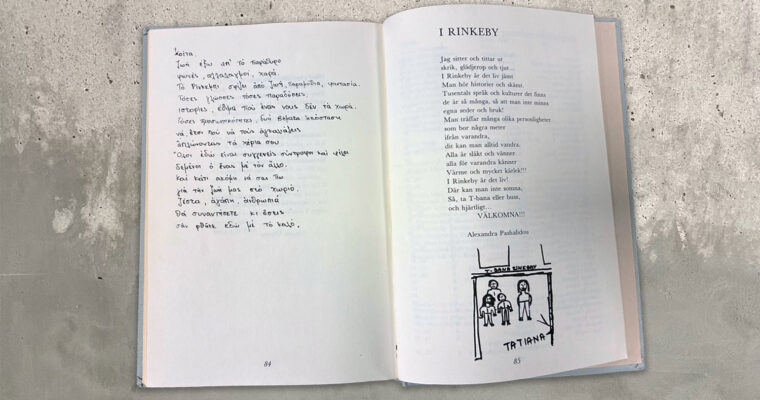 Κοίτα.
Ζωή έξω απ' τό παράθυρο
φωνές, αλλαλαγμοί, χαρά.
Τό Ρίνκεμπι σφύζει από ζωή, παραμύθια, φαντασία.
Τόσες γλώσσες τόσες παραδόσεις
ιστορίες, έθιμα πού ένας νους δέν τά χωρά.
Τόσες προσωπικότητες, δυό βήματα απόσταση
νά, έτσι πού νά τούς αγκαλιάζεις
απλώνοντας τά χέρια σου
Όλοι εδώ είναι συγγενείς σύντροφοι καί φίλοι
δεμένοι ο ένας μέ τόν άλλο.
Καί κάτι ακόμη νά σας πω
γιά τήν ζωή μας στό χωριό.
Ζέστα, αγάπη, ανθρωπιά
θά συναντήσετε κι εσείς
σάν ρθήτε εδώ μέ τό καλό.
84
I RINKEBY
Jag sitter och tittar ut
skrik, glädjerop och tjut...
I Rinkeby är det liv jämt
Man hör historier och skämt.
Tusentals språk och kulturer det finns
de är så många, så att man inte minns
egna seder och bruk!
Man träffar många olika personligheter
som bor några meter
ifrån varandra,
dit kan man alltid vandra.
Alla är släkt och vänner
alla för varandra känner
Värme och mycket kärlek!!!
I Rinkeby är det liv!
Där kan man inte somna,
Så, ta T-bana eller buss,
och hjärtligt...
VÄLKOMNA!!!
Alexandra Pashalidou
T-BANA RINKEBY
TATIANA
85